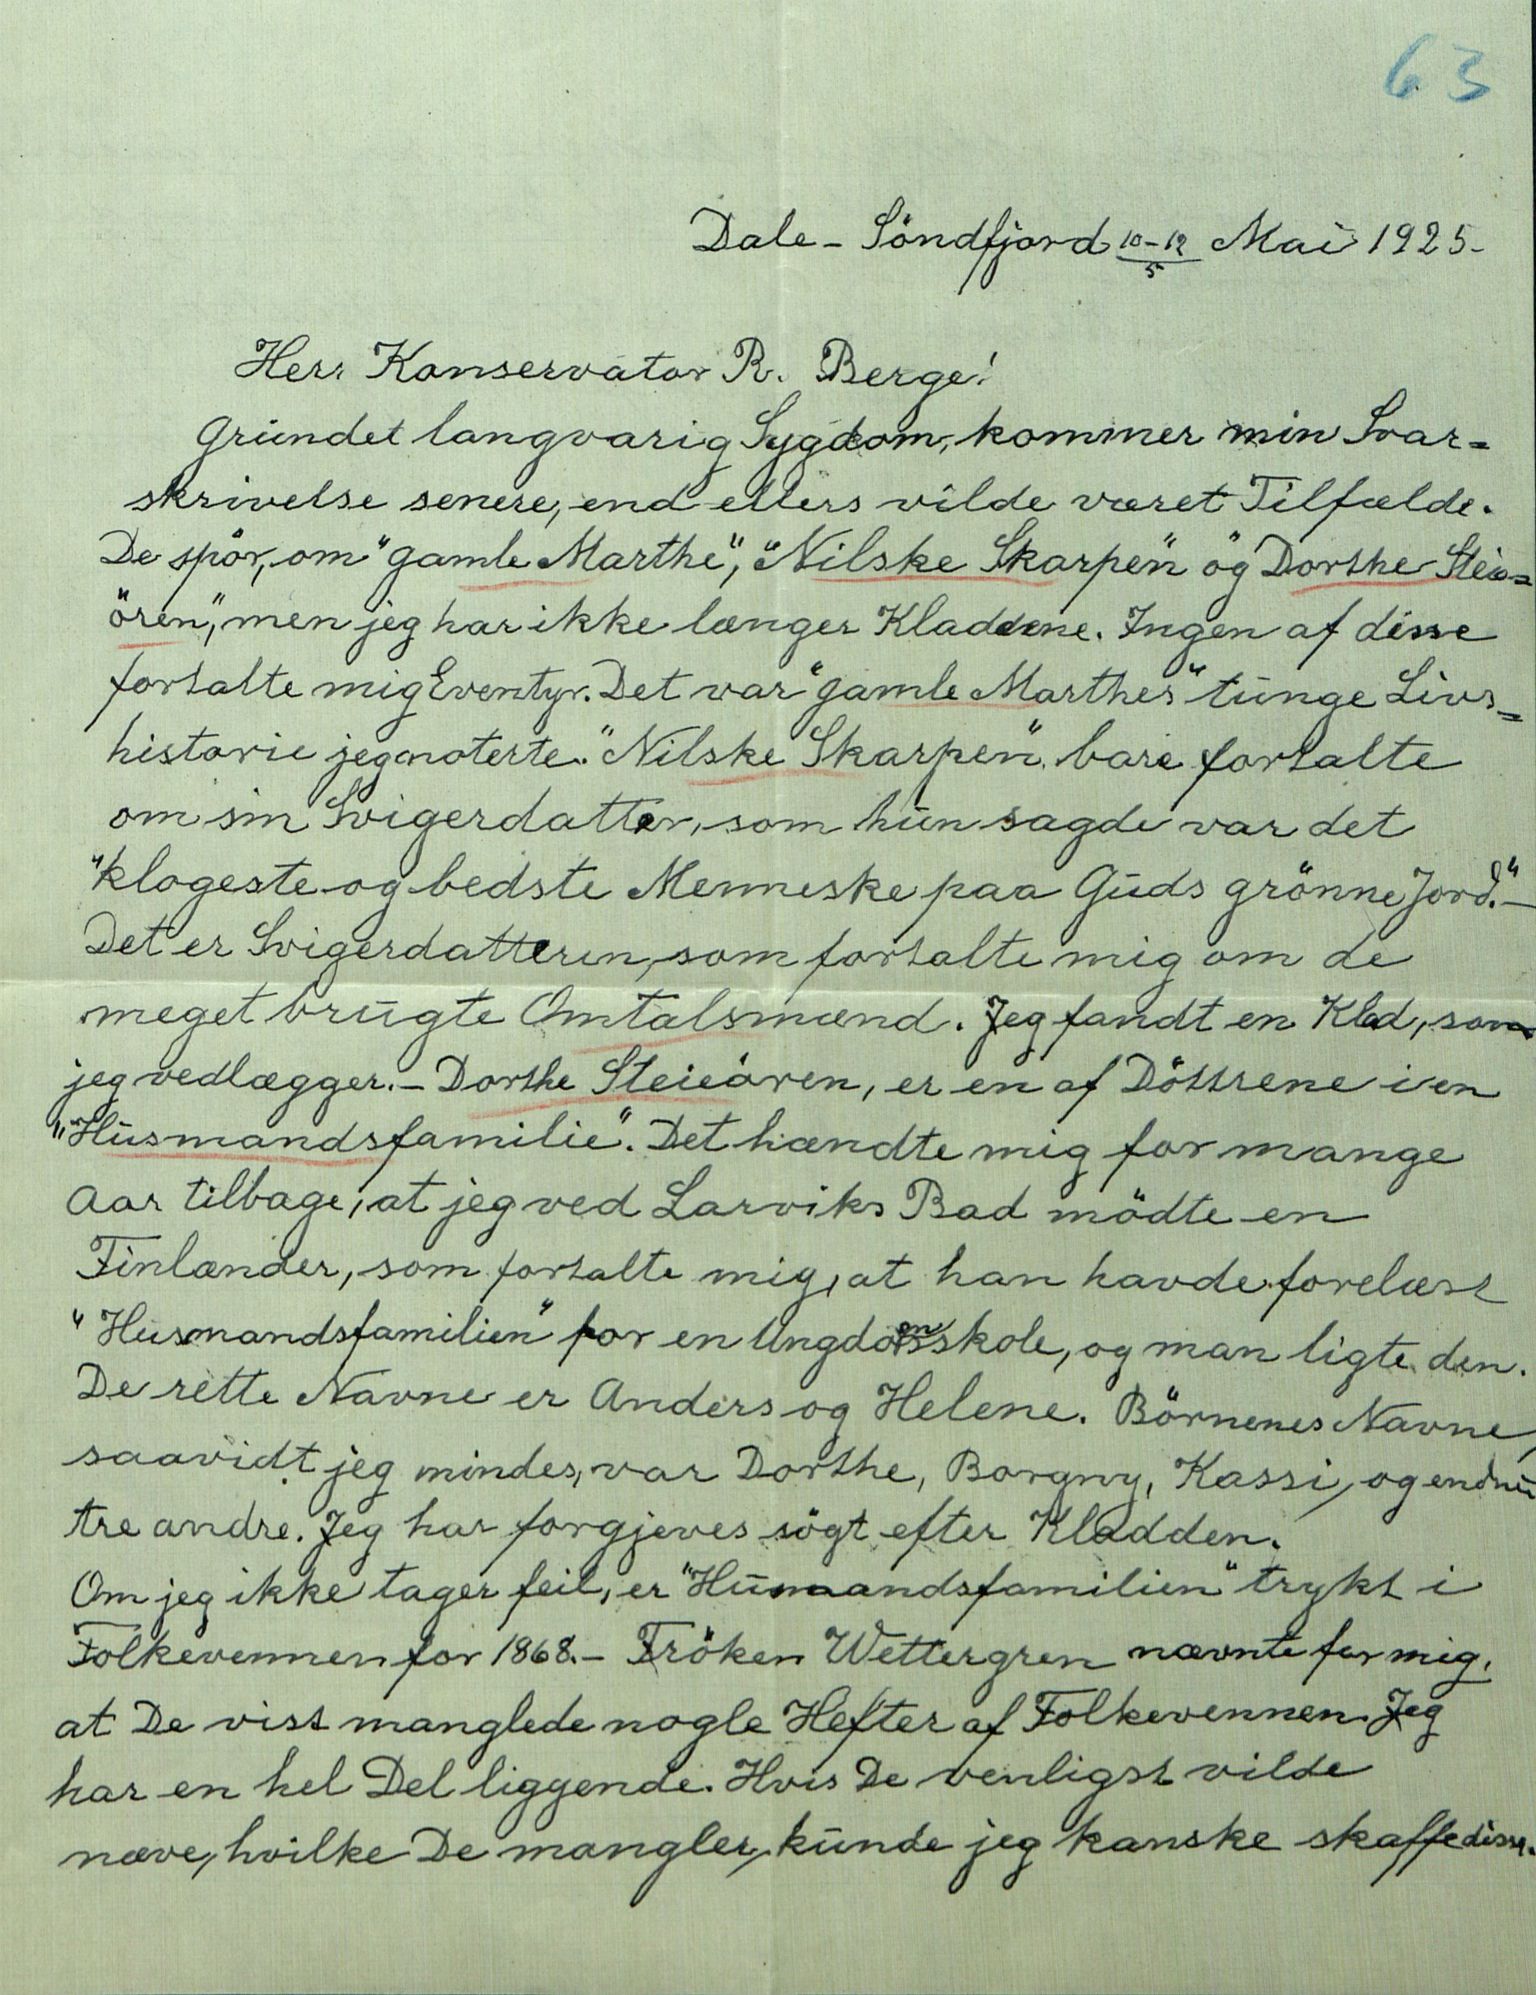 63
Dale - Söndfjord 10-12/5 Mai 1925-
Herr Konservator R. Berge!
Grundet langvarig Sygdom, kommer min Svar=
skrivelse senere, end ellers vilde været Tilfælde.
De spör, om "gamle Marthe", "Nilske Skarpen" og Dorthe Steie=
ören", men jeg har ikke længer Kladdene. Ingen af disse
fortalte mig Eventyr. Det var "gamle Marthes" tunge Livs=
historie jeg noterte. "Nilske Skarpen" bare fortalte
om sin Svigerdatter, som hun sagde var det
"klogeste og bedste Menneske paa Guds grönne Jord." -
Det er Svigerdatteren, som fortalte mig om de
meget brugte Omtalsmænd. Jeg fandt en Klad, som
jeg vedlægger. - Dorthe Steieören, er en af Döttrene i en
"Husmandsfamilie". Det hændte mig for mange
Aar tilbage, at jeg ved Larviks Bad mödte en
Finlænder, som fortalte mig, at han havde forelæst
"Husmandsfamilien" for en Ungdomsskole, og man ligte den.
De rette Navne er Anders og Helene. Börnenes Navne,
saavidt jeg mindes, var Dorthe, Borgny, Kassi, og endnu
tre andre. Jeg har forgjeves sögt efter Kladden.
Om jeg ikke tager feil, er "Husmandsfamilien" trykt i
Folkevennen for 1868. - Fröken Wettergren nævnte for mig,
at De vist manglede nogle Hefter af Folkevennen. Jeg
har en hel Del liggende. Hvis De venligst vilde
næve, hvilke De mangler, kunde jeg kanske skaffe disse.